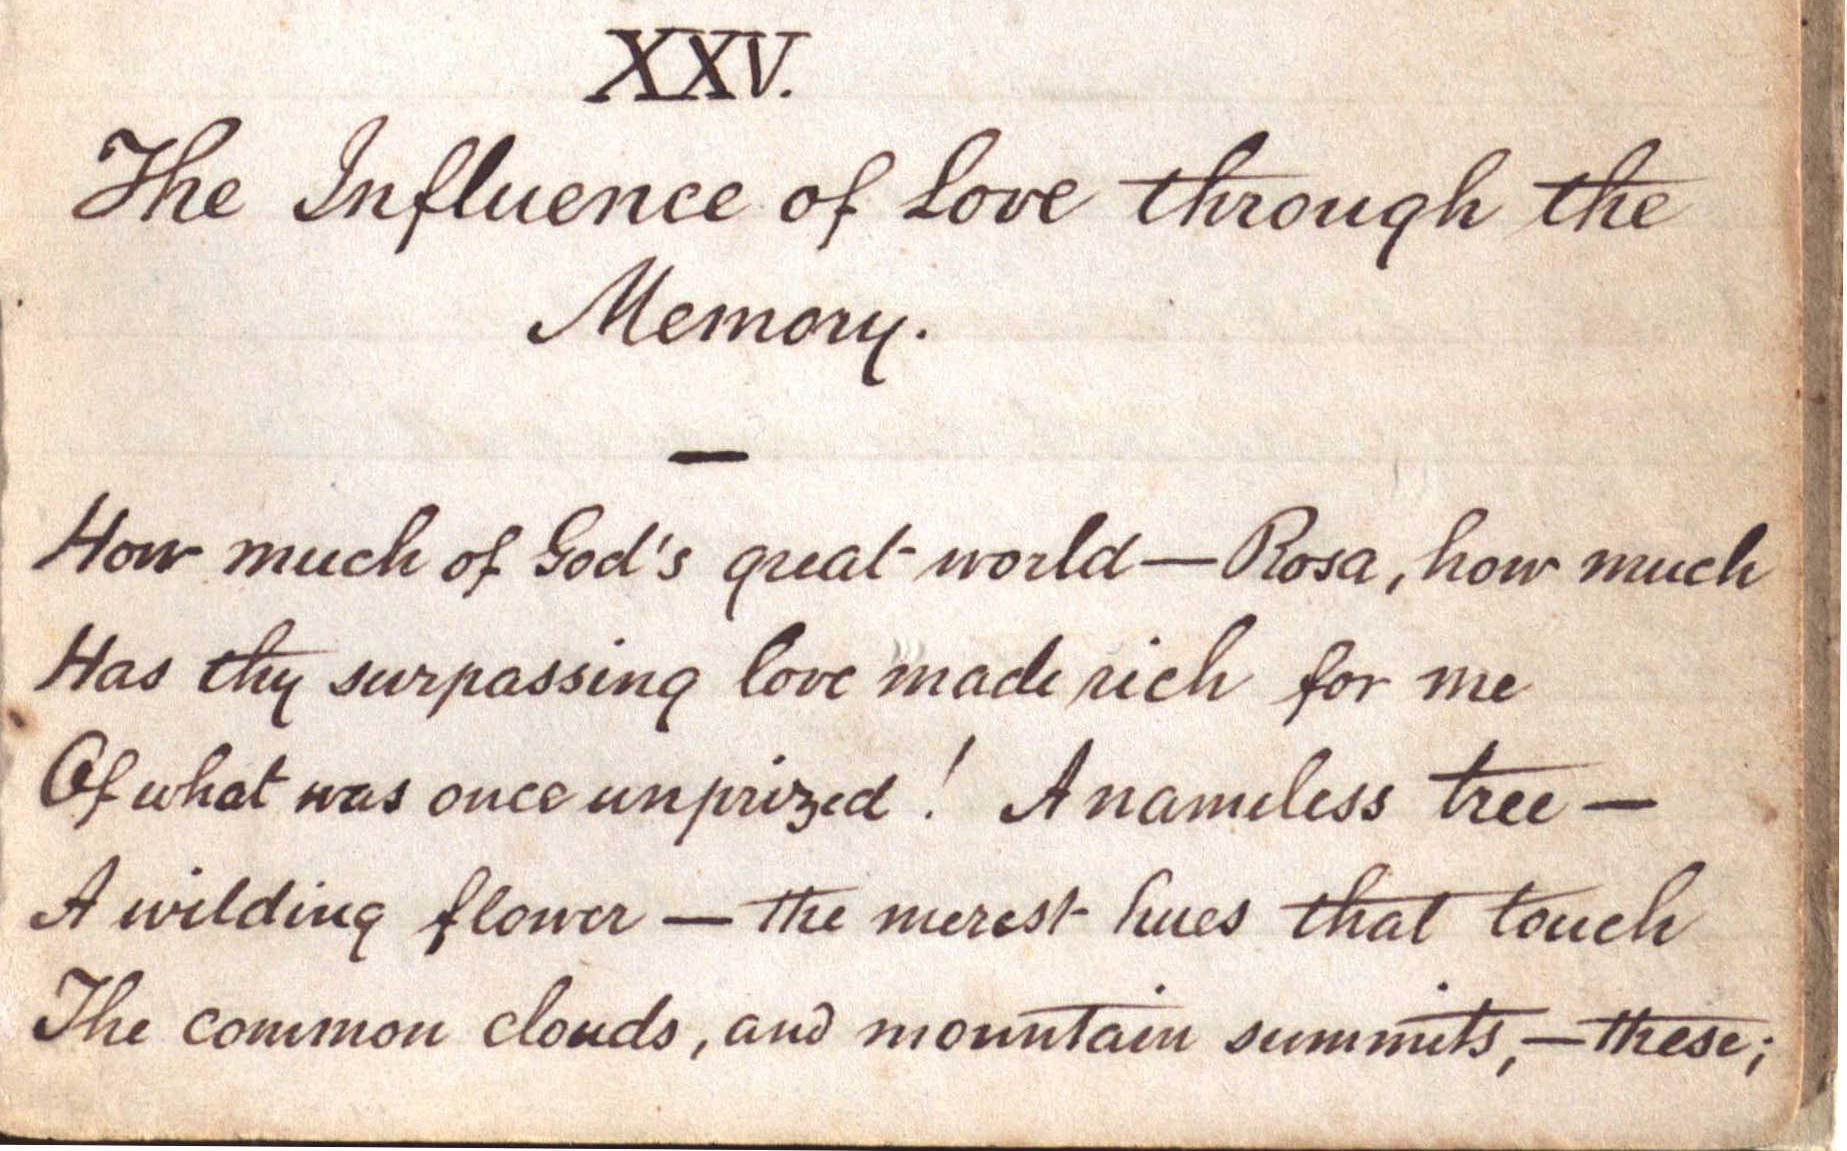 XXV.
The Influence of Love through the
Memory.
—
How much of God's great world — Rosa, how much
Has thy surpassing love made rich for me
Of what was once unprized! A nameless tree —
A wilding flower — the merest hues that touch
The common clouds, and mountain summits, — these;